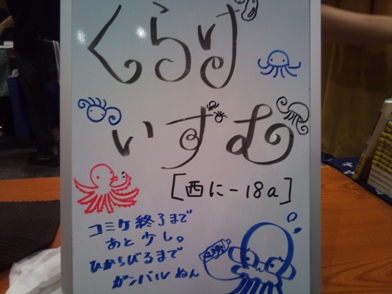 くらげ
いずむ
[西に-18a]
コミケ終了まで
あと少し。
ひからびるまで
ガンバルねん